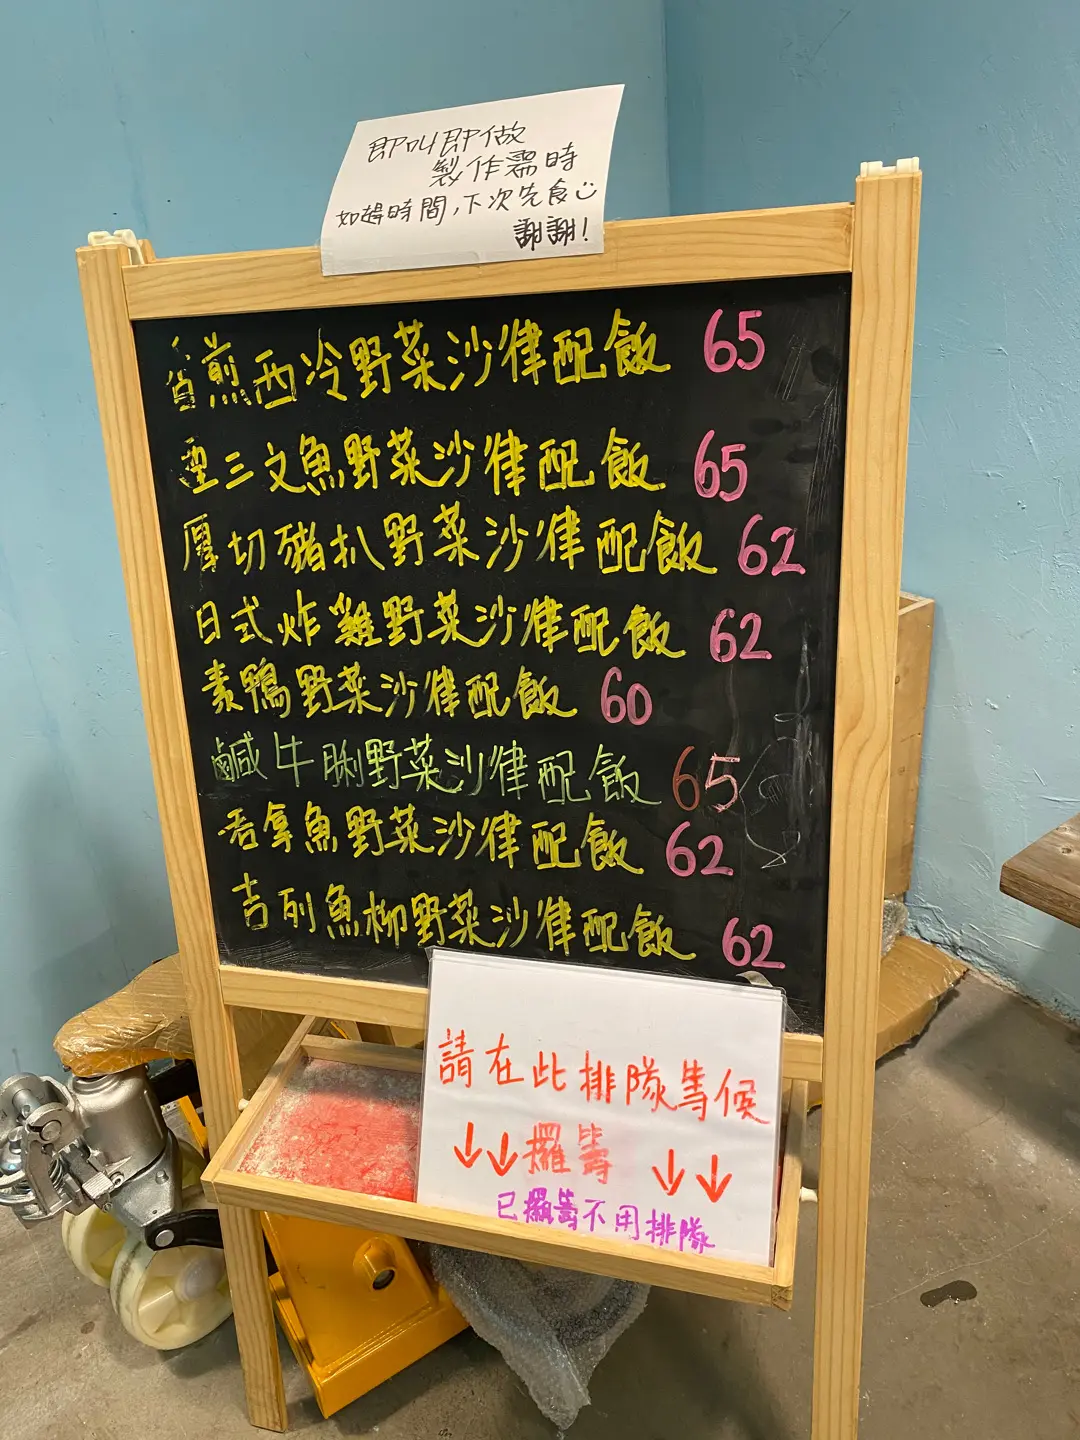 即叫即做
製作需時
如趕時間,下次先食☺
謝謝!
香煎西冷野菜沙律配飯 65
煙三文魚野菜沙律配飯 65
厚切豬扒野菜沙律配飯 62
日式炸雞野菜沙律配飯 62
素鴨野菜沙律配飯 60
鹹牛脷野菜沙律配飯 65
吞拿魚野菜沙律配飯 62
吉列魚柳野菜沙律配飯 62
請在此排隊等候
↓↓攞籌 ↓↓
已攞籌不用排隊